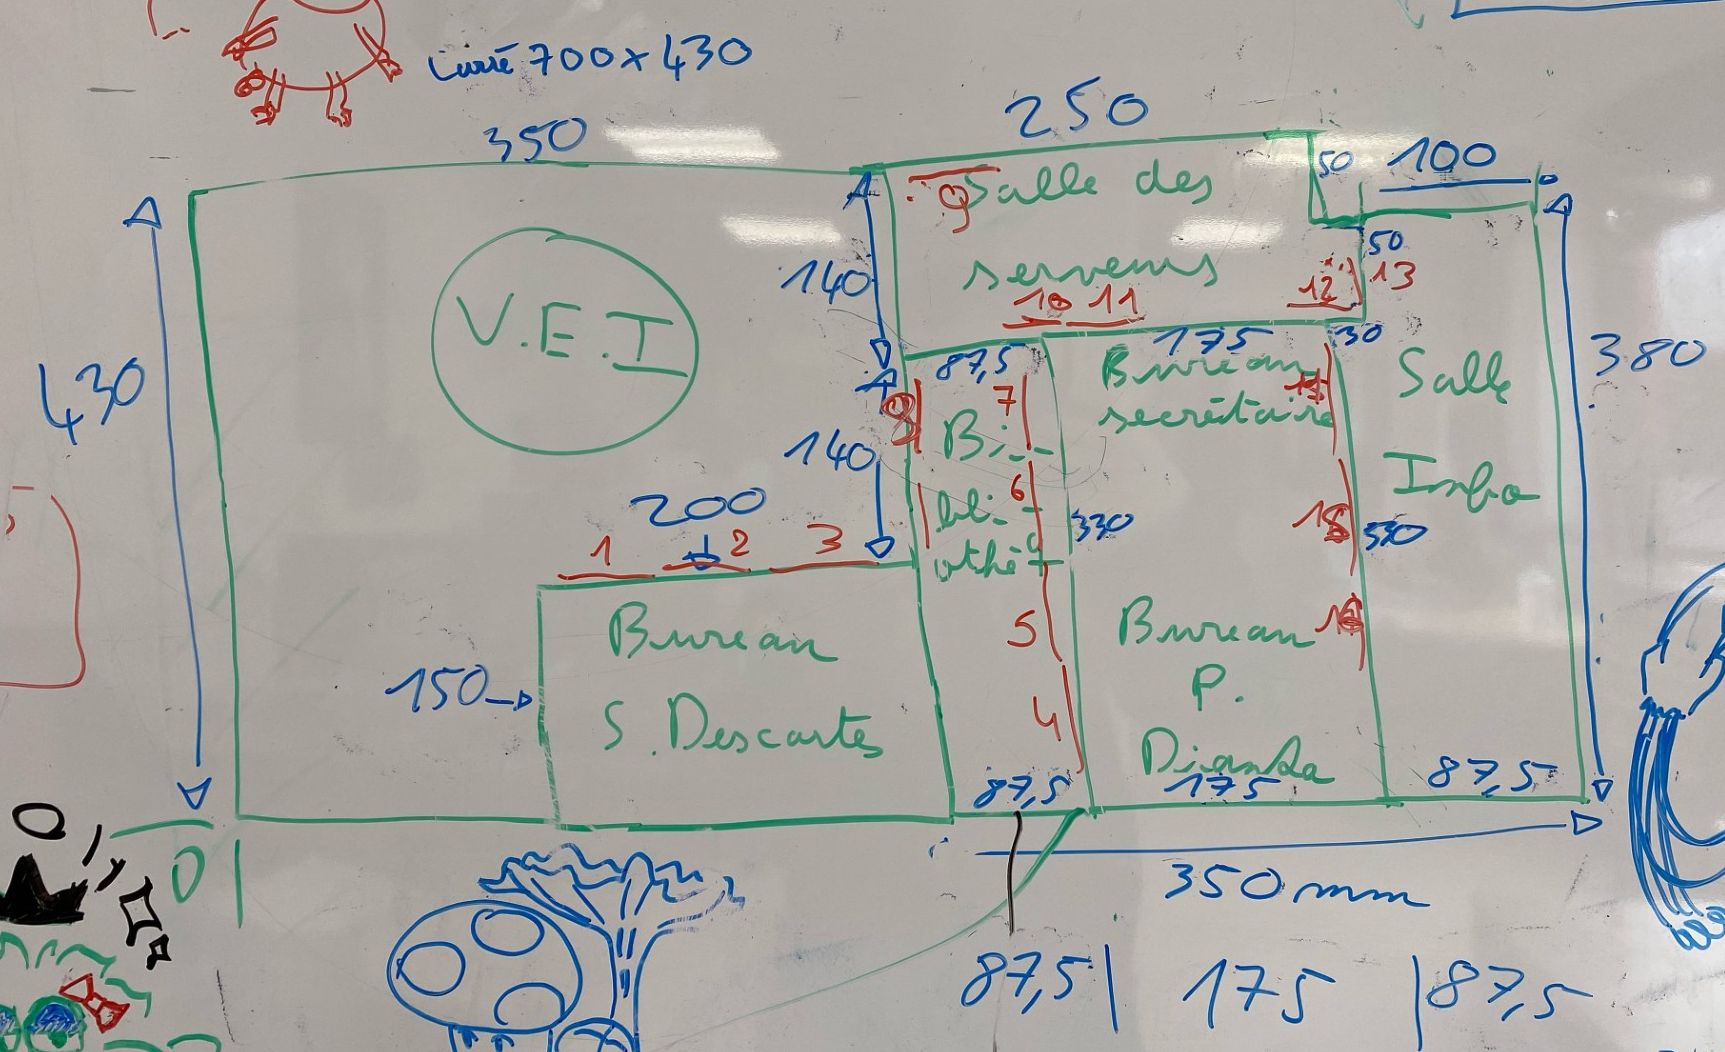 Carré 700x430
350
250
50
100
Salle des
9
serveurs
50
140
10 11
12
13
V.E.I
430
87,5
175
30
Bureau
secrétaire
Salle
Info
380
8
7
14
Bi-
140
6
bli-
othè
200
330
15
330
1 2 3
Bureau
S. Descartes
150
5
4
16
Bureau
P.
87,5
175
87,5
350mm
0
87,5 | 175 | 87,5